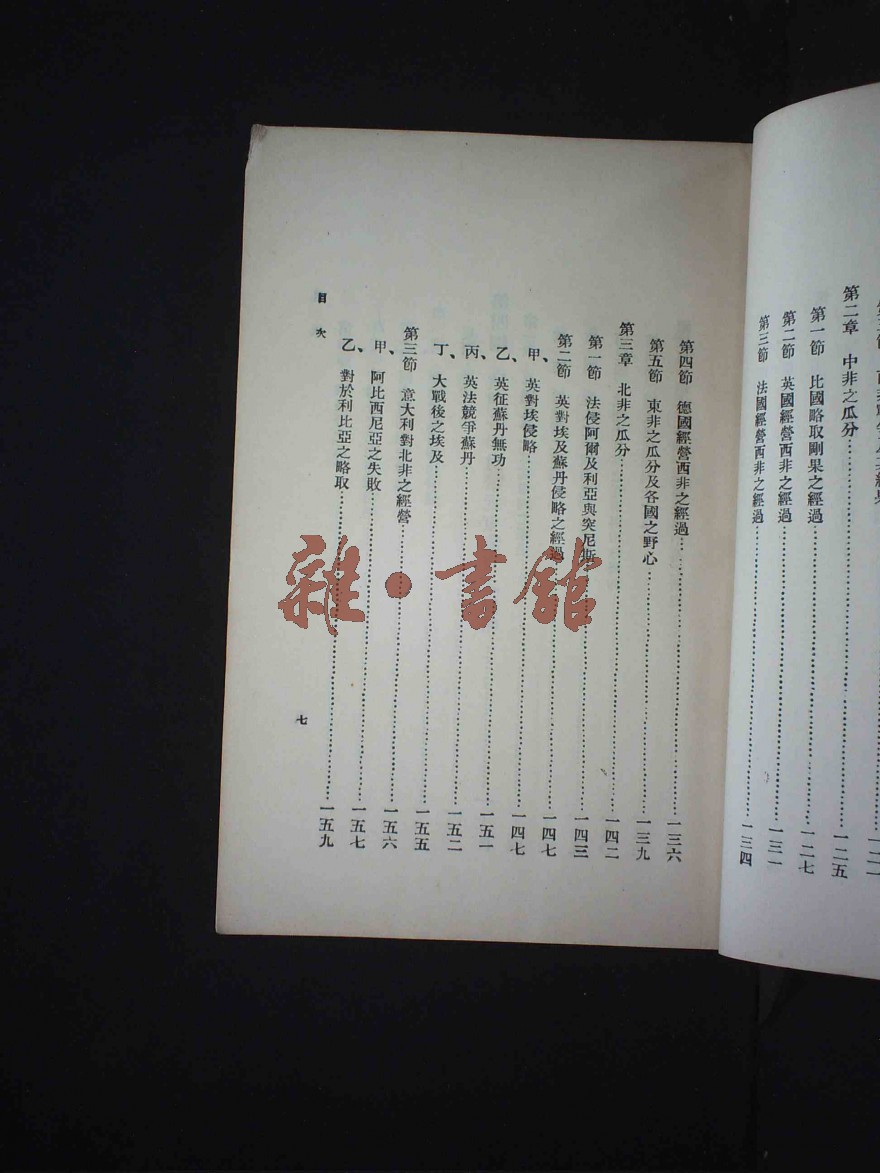 第二章　中非之瓜分……一二五
第一節　比國略取剛果之經過……一二七
第二節　英國經營西非之經過……一三一
第三節　法國經營西非之經過……一三四
第四節　德國經營西非之經過……一三六
第五節　東非之瓜分及各國之野心……一三九
第三章　北非之瓜分……一四二
第一節　法侵阿爾及利亞與突尼斯……一四三
第二節　英對埃及蘇丹侵略之經過……一四七
甲、英對埃侵略……一四七
乙、英征蘇丹無功……一五一
丙、英法競爭蘇丹……一五二
丁、大戰後之埃及……一五五
第三節　意大利對北非之經營……一五六
甲、阿比西尼亞之失敗……一五七
乙、對於利比亞之略取……一五九
目次
七
雜·書館